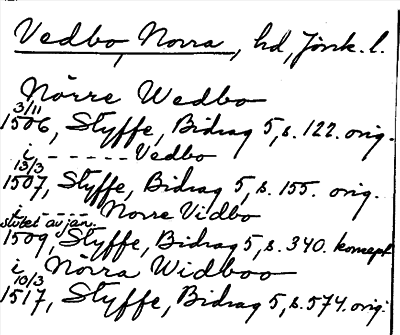 Vedbo, Norra, hd, Jönk. l.
Nörre Wedbo
3/11
1506, Styffe, Bidrag 5, s. 122. orig.
i - - - - - Vedbo
13/3
1507, Styffe, Bidrag 5, s. 155. orig.
i - - - - Norre Vidbo
slutet av jan.
1509, Styffe, Bidrag 5, s. 340. koncept
i Nörra Widboo
10/3
1517, Styffe, Bidrag 5, s. 574. orig.